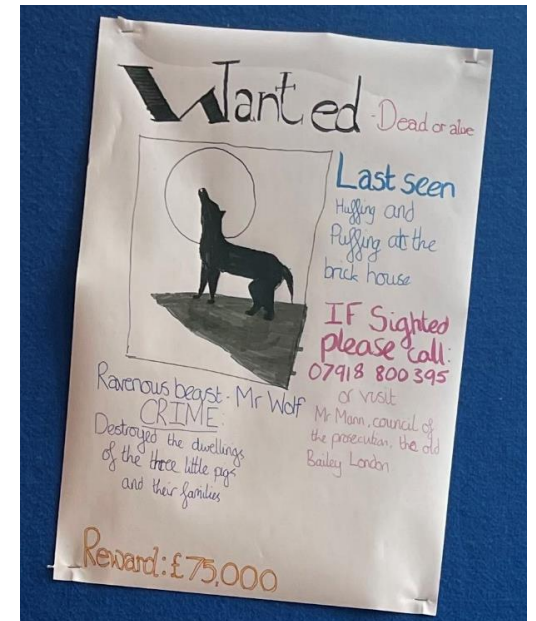 Wanted - Dead or alive
Last seen
Huffing and
Puffing at the
brick house
IF Sighted
please call:
07918 800395
or visit
Mr Mann, council of
the prosecution, the old
Bailey London
Ravenous beast - Mr Wolf
CRIME:
Destroyed the dwellings
of the three little pigs
and their families
Reward: £75,000